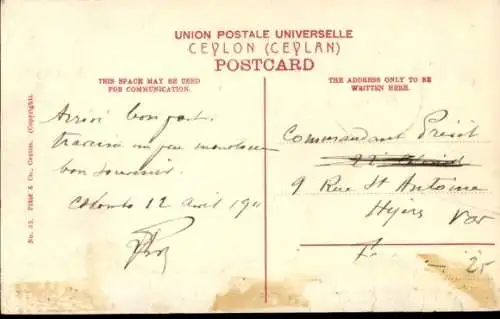 UNION POSTALE UNIVERSELLE
CEYLON (CEYLAN)
POSTCARD
THIS SPACE MAY BE USED
FOR COMMUNICATION.
THE ADDRESS ONLY TO BE
WRITTEN HERE.
No. 43. Plâté & Co., Ceylon. (Copyright).
Arrivé bon port.
traversée un peu monotone
bon souvenir.
Colombo 12 avril 1911
Commandant
9 Rue St Antoine
Hyères Var
F.
25